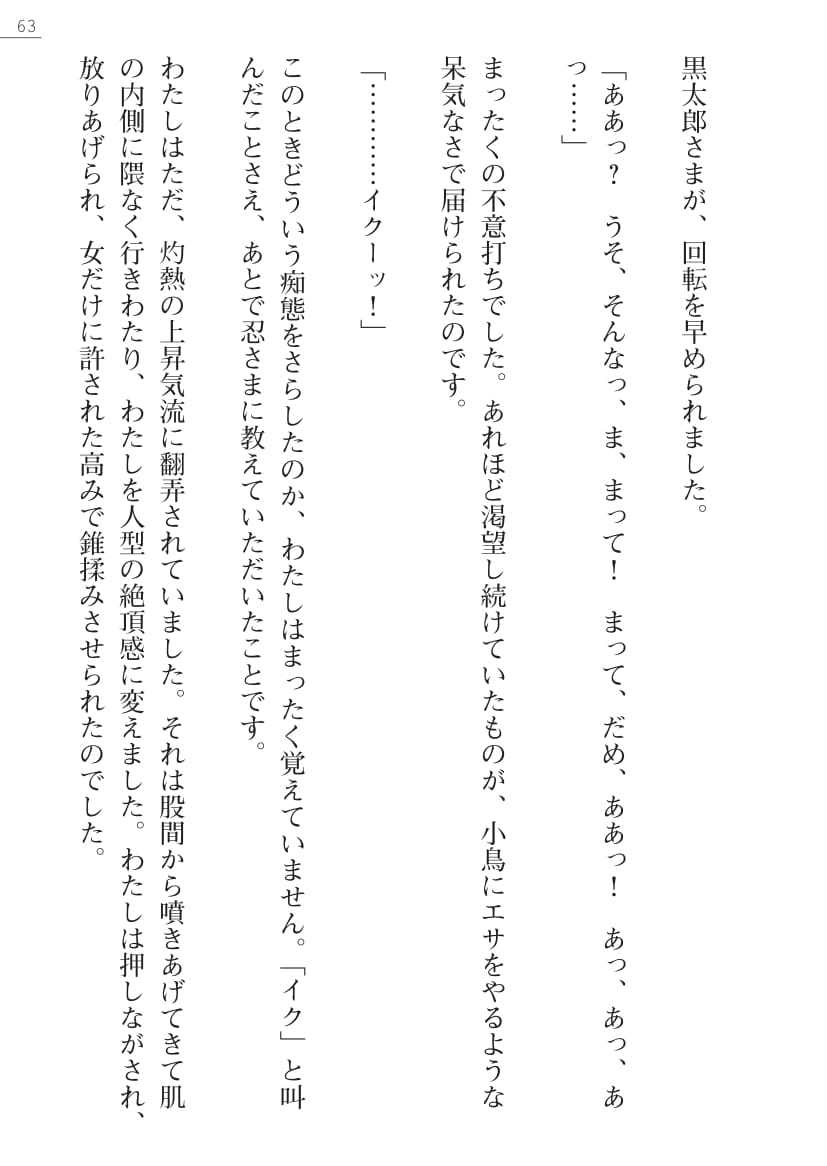 63
黒太郎さまが、回転を早められました。
「ああっ？　うそ、そんなっ、ま、まって！　まって、だめ、ああっ！　あっ、あっ、あ
っ……」
まったくの不意打ちでした。あれほど渇望し続けていたものが、小鳥にエサをやるような
呆気なさで届けられたのです。
「…………イクーッ！」
このときどういう痴態をさらしたのか、わたしはまったく覚えていません。「イク」と叫
んだことさえ、あとで忍さまに教えていただいたことです。
わたしはただ、灼熱の上昇気流に翻弄されていました。それは股間から噴きあげてきて肌
の内側に隈なく行きわたり、わたしを人型の絶頂感に変えました。わたしは押しながされ、
放りあげられ、女だけに許された高みで錐揉みさせられたのでした。